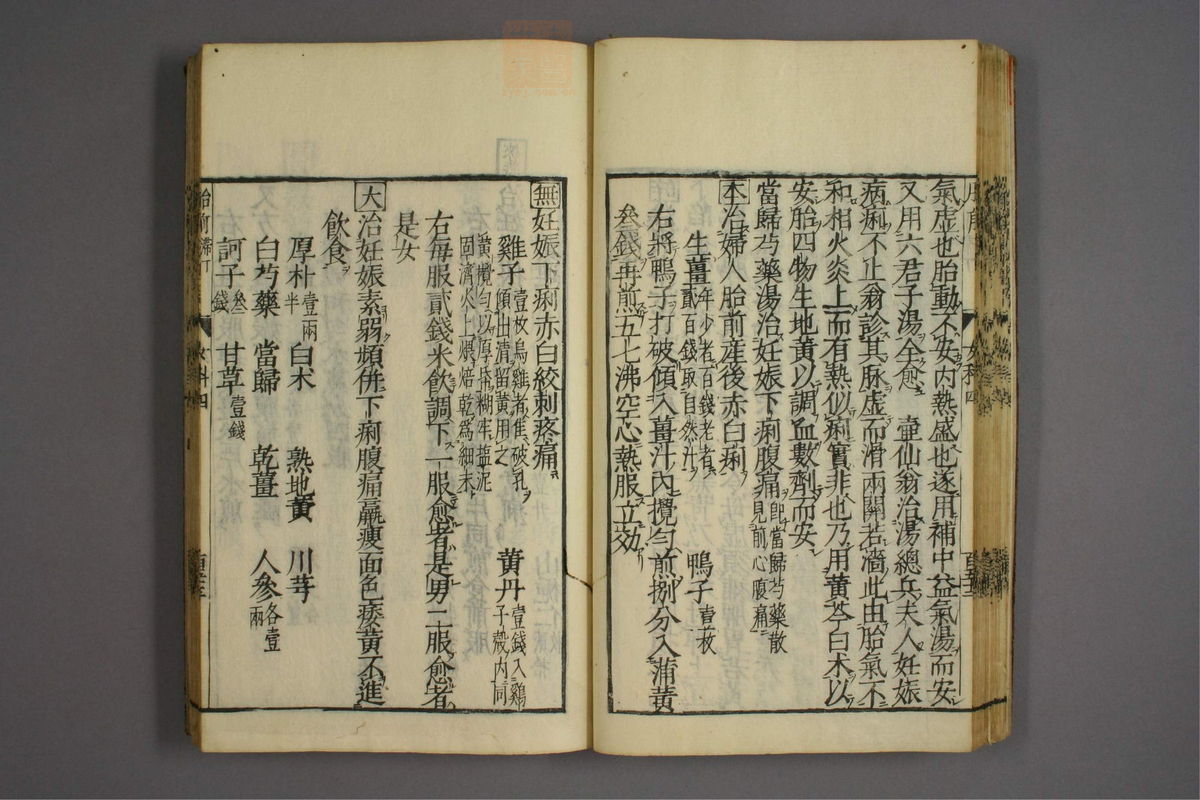 氣虛也胎動不安內熱盛也遂用補中益氣湯而安
又用六君子湯全愈 壺仙翁治湯總兵夫人妊娠
病痢不止翁診其脉虛而滑兩關若濇此由胎氣不
和相火炎上而有熱似痢實非也乃用黃芩白术以
安胎四物生地黃以調血數劑而安
當歸芍藥湯治妊娠下痢腹痛即當歸芍藥散見前心腹痛
本治婦人胎前產後赤白痢
生薑年少者百錢老者貳百錢取自然汁 鴨子壹枚
右將鴨子打破傾入薑汁內攪勻煎捌分入蒲黃
叄錢再煎五七沸空心熱服立効
無妊娠下痢赤白絞刺疼痛
雞子壹枚烏雞者隹破孔傾出清留黃用之 黃丹壹錢入鷄子殼內同
黃攪勻以厚帋糊牢塩泥固濟火上煨焙乾爲細末
右每服貳錢米飮調下一服愈者是男二服愈者
是女
大治妊娠素弱頻併下痢腹痛羸瘦面色痿黃不進
飮食
厚朴壹兩半 白术 熟地黃 川芎
白芍藥 當歸 乾薑 人參各壹兩
訶子叄錢 甘草壹錢
女科四